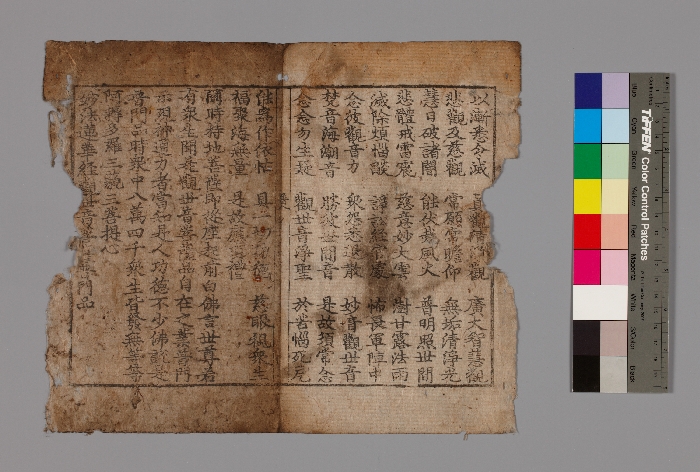 以漸悉令滅 真觀清淨觀 廣大智慧觀
悲觀及慈觀 常願常瞻仰 無垢清淨光
慧日破諸闇 能伏災風火 普明照世間
悲體戒雷震 慈意妙大雲 澍甘露法雨
滅除煩惱燄 諍 怖畏軍陣中
念彼觀音力 衆怨悉退散 妙音觀世音
梵音海潮音 勝彼世間音 是故須常念
念念勿生疑 觀世音淨聖 於苦惱死厄
能爲作依怙 具一切功德 慈眼視衆生
福聚海無量 是故應頂禮
爾時持地菩薩即從座起前白佛言世尊若
有衆生聞是觀世音菩薩品自在之業普門
示現神通力者當知是人功德不少佛說是
普門品時衆中八萬四千衆生皆發無等等
阿耨多羅三藐三菩提心
妙法蓮華經觀世音菩薩普門品
TIFFEN Color Control Patches
Blue
Cyan
Green
Yellow
Red
Magenta
White
3/Color
Black